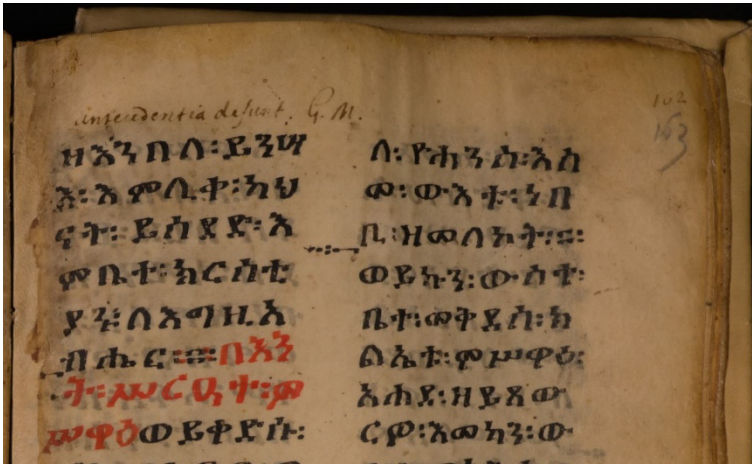 antecedentia desunt. G. M.
102
163
ዘእንበለ፡ ይንሣ
እ፡ እምሊቀ፡ ካህ
ናት፡ ይሰደድ፡ እ
ምቤተ፡ ክርስቲ
ያኑ፡ ለእግዚአ
ብሔር ። በእን
ት፡ ሥርዓተ፡ ም
ሥዋዕ ወይቀድሱ፡
ለ፡ ዮሐንስ፡ እስ
መ፡ ውእቱ፡ ነበ
ቢ፡ ዘመለኮት ።
ወይኩን፡ ውስተ፡
ቤተ፡ መቅደስ፡ ክ
ልኤቱ፡ ምሥዋዕ፡
አሐደ፡ ዘይጸውር
ዎ፡ እመካን፡ ው